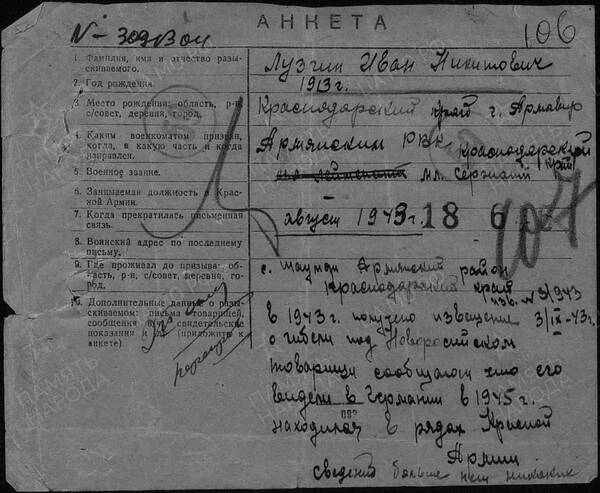 АНКЕТА
106
1. Фамилия, имя и отчество разыскиваемого.
Лузгин Иван Никитович
2. Год рождения.
1913 г.
3. Место рождения: область, р-н,
с/совет, деревня, город.
Краснодарский край г. Армавир
4. Каким военкоматом призван,
когда, в какую часть и когда
направлен.
Армянским РВК Краснодарский край
5. Военное звание.
мл. сержант
6. Занимаемая должность в Красной Армии.
7. Когда прекратилась письменная
связь.
август 1943
186
107
8. Воинский адрес по последнему
письму.
9. Где проживал до призыва: область, р-н, с/совет, деревня, город.
с. Армянский район
Краснодарский край
10. Дополнительные данные о разыскиваемом: письма товарищей,
сообщения или свидетельские
показания и др. (приложить к
анкете).
в 1943 г. получено извещение
о гибели под Новоросийском
товарищи сообщают что его
видели в Германии в 1945 г.
находился в рядах Красной
Армии
сведений больше нет никаких
ПАМЯТЬ
НАРОДА